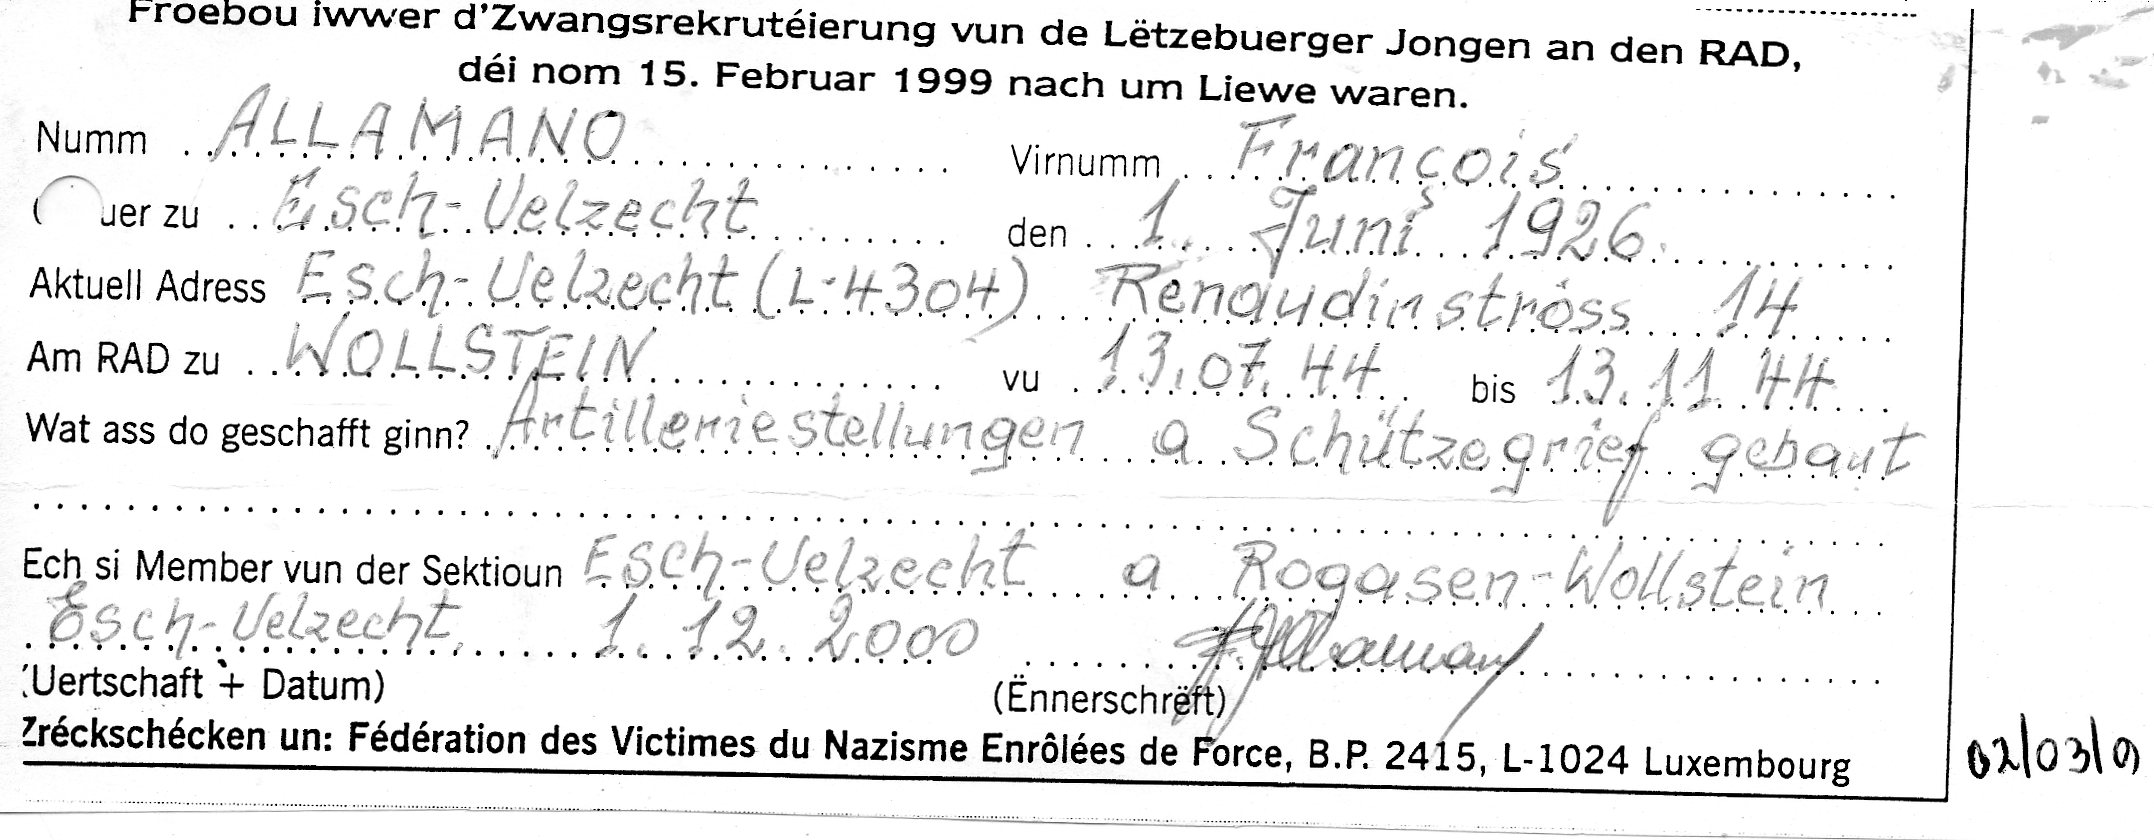 Froebou iwwer d'Zwangsrekrutéierung vun de Lëtzebuerger Jongen an den RAD,
déi nom 15. Februar 1999 nach um Liewe waren.
Numm ALLAMANO Virnumm François
uer zu Esch-Uelzecht den 1 Juni 1926
Aktuell Adress Esch-Uelzecht (L-4304) Renaudinströss 14
Am RAD zu WOLLSTEIN vu 13.07.44 bis 13.11.44
Wat ass do geschafft ginn? Artilleriestellungen a Schützegrief gebaut
Ech si Member vun der Sektioun Esch-Uelzecht a Rogasen-Wollstein
Esch-Uelzecht 1.12.2000
(Uertschaft + Datum) (Ënnerschrëft)
Zréckschécken un: Fédération des Victimes du Nazisme Enrôlées de Force, B.P. 2415, L-1024 Luxembourg
02/03/01